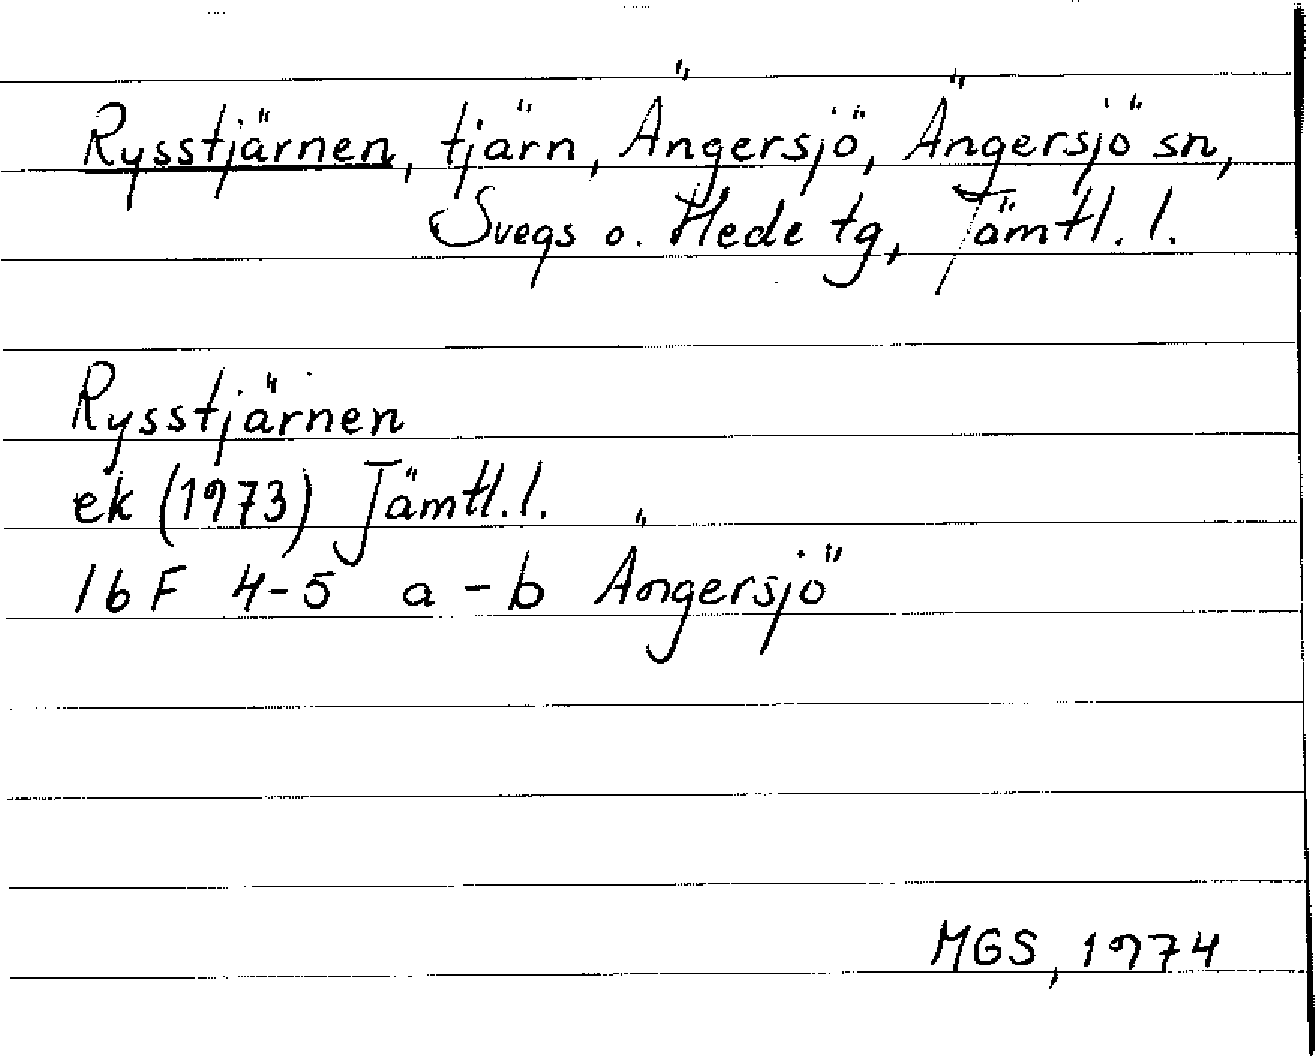 Rysstjärnen, tjärn, Ängersjö, Ängersjö sn,
Svegs o. Hede tg, Jämtl. l.
Rysstjärnen
ek (1973) Jämtl. l.
16 F 4-5 a - b Ängersjö
MGS, 1974